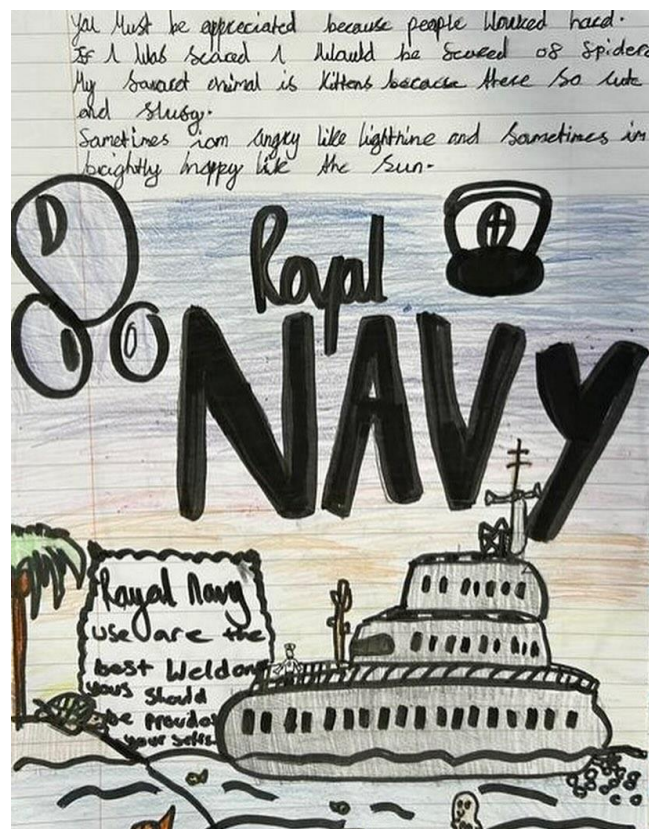 you Must be appreciated because people Worked hard.
If I Was scared I Would be Scared of Spiders
My favaret animal is Kittens because there So cute
and flufy.
Sometimes iam angry like lightnine and Sometimes im
brightly happy like the sun.
Royal
NAVY
Royal Navy
use are the
best Weldon
yous Should
be proudes
your selfs